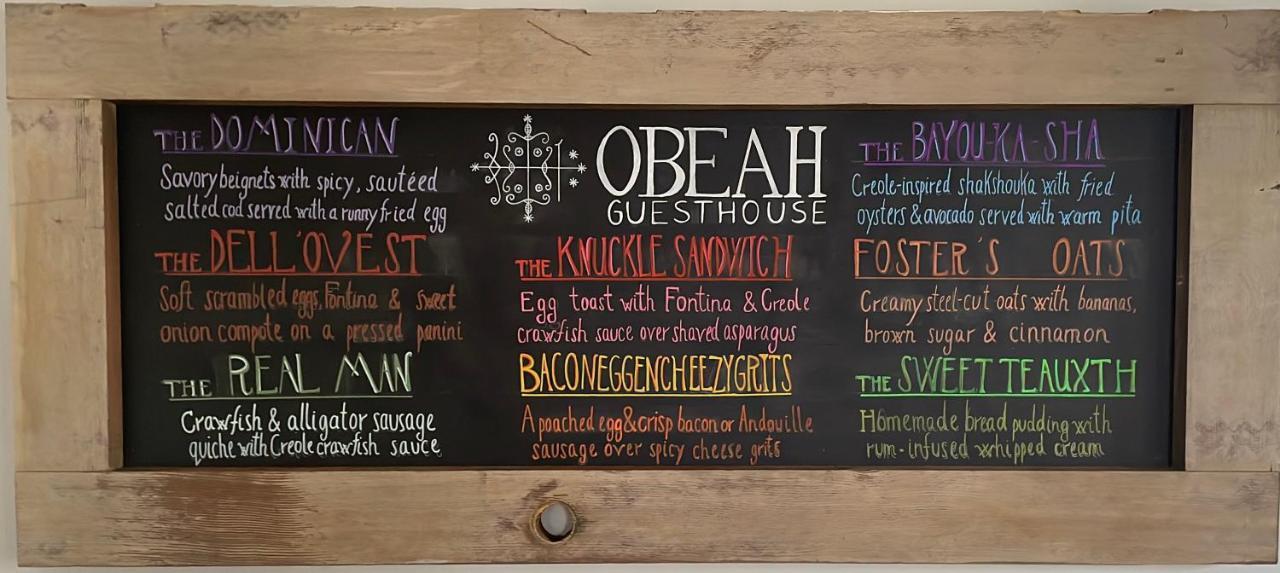 THE DOMINICAN
Savory beignets with spicy, sautéed
salted cod served with a runny fried egg
THE DELL'OVEST
Soft scrambled eggs, Fontina & sweet
onion compote on a pressed panini
THE REAL MAN
Crawfish & alligator sausage
quiche with Creole crawfish sauce
OBEAH
GUESTHOUSE
THE KNUCKLE SANDWICH
Egg toast with Fontina & Creole
crawfish sauce over shaved asparagus
BACONEGGENCHEEZYGRITS
A poached egg & crisp bacon or Andouille
sausage over spicy cheese grits
THE BAYOU-KA-SHA
Creole-inspired shakshouka with fried
oysters & avocado served with warm pita
FOSTER'S OATS
Creamy steel-cut oats with bananas,
brown sugar & cinnamon
THE SWEET TEAUXTH
Homemade bread pudding with
rum-infused whipped cream